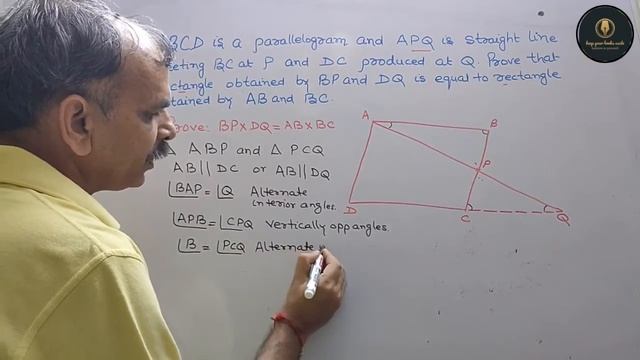 BCD is a parallelogram and APQ is straight line
eting BC at P and DC produced at Q. Prove that
ctangle obtained by BP and DQ is equal to rectangle
tained by AB and BC.
rove: BP×DQ = AB×BC
△ ABP and △ PCQ
AB || DC or AB || DQ
∠BAP = ∠Q Alternate
interior angles.
∠APB = ∠CPQ Vertically opp angles.
∠B = ∠PCQ Alternate
A
B
P
D
C
Q